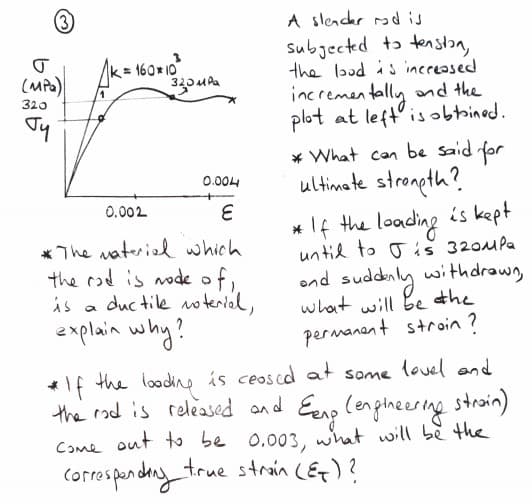 3
σ
(MPa)
320
σy
k = 160*10³
1
320 MPa
0.004
0.002
ε
A slender rod is
subjected to tension,
the load is increased
incrementally and the
plot at left is obtained.
* What can be said for
ultimate strength?
* If the loading is kept
until to σ is 320MPa
and suddenly withdrawn,
what will be the
permanent strain?
* The material which
the rod is made of,
is a ductile material,
explain why?
* If the loading is ceased at some level and
the rod is released and Eeng (engineering strain)
come out to be 0.003, what will be the
corresponding true strain (ET)?